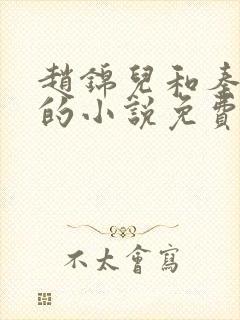 趙錦兒和秦
的小說免費
不太會寫